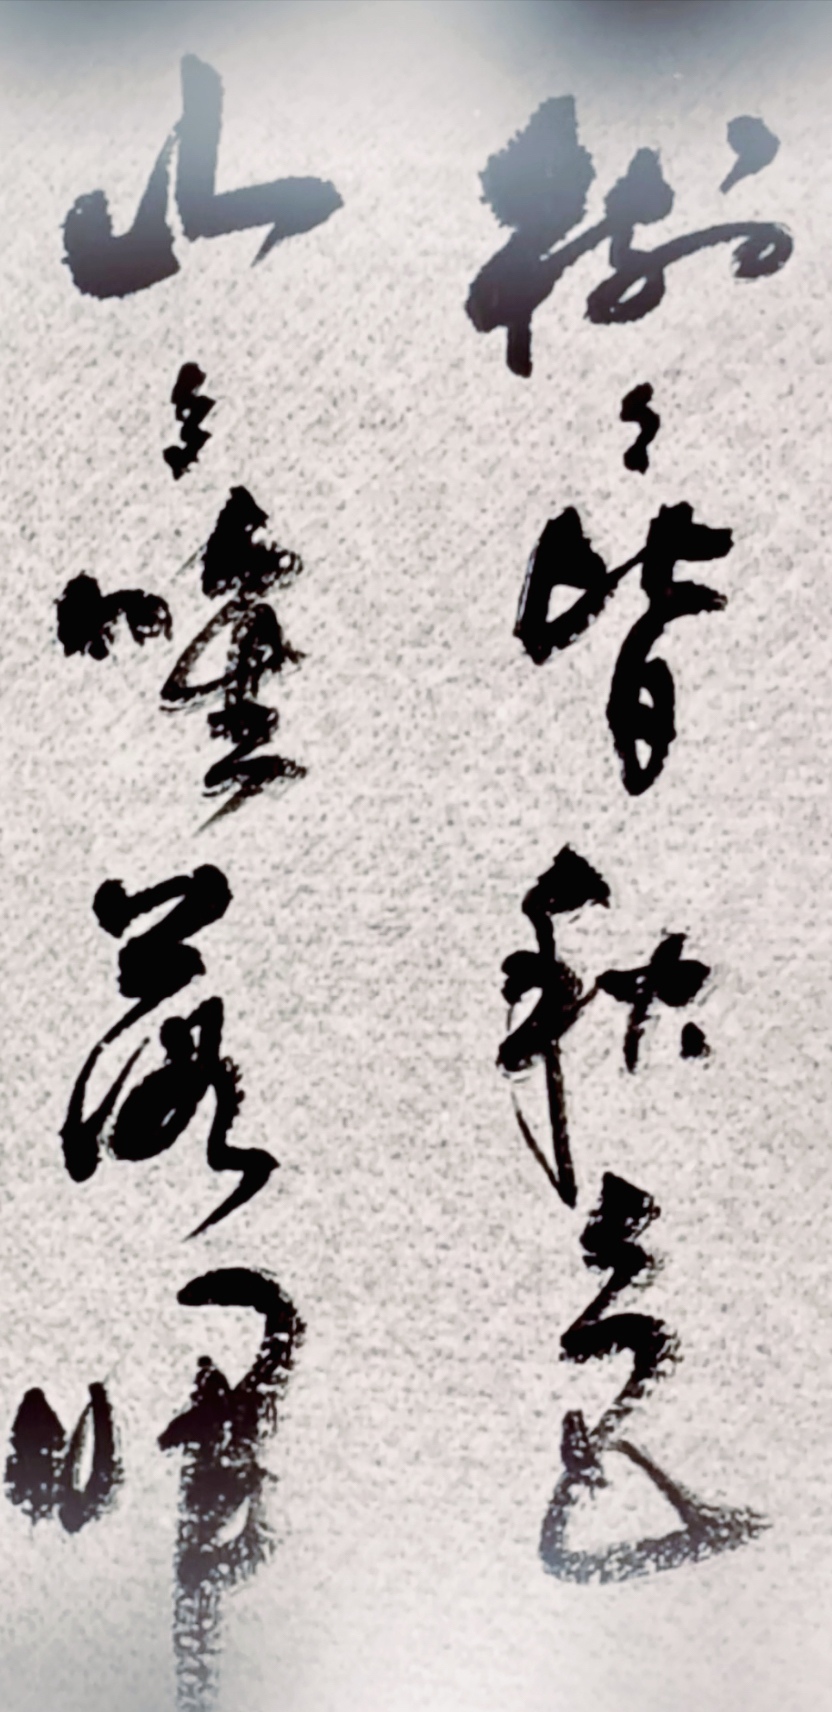 樹々皆秋色
山々唯落暉